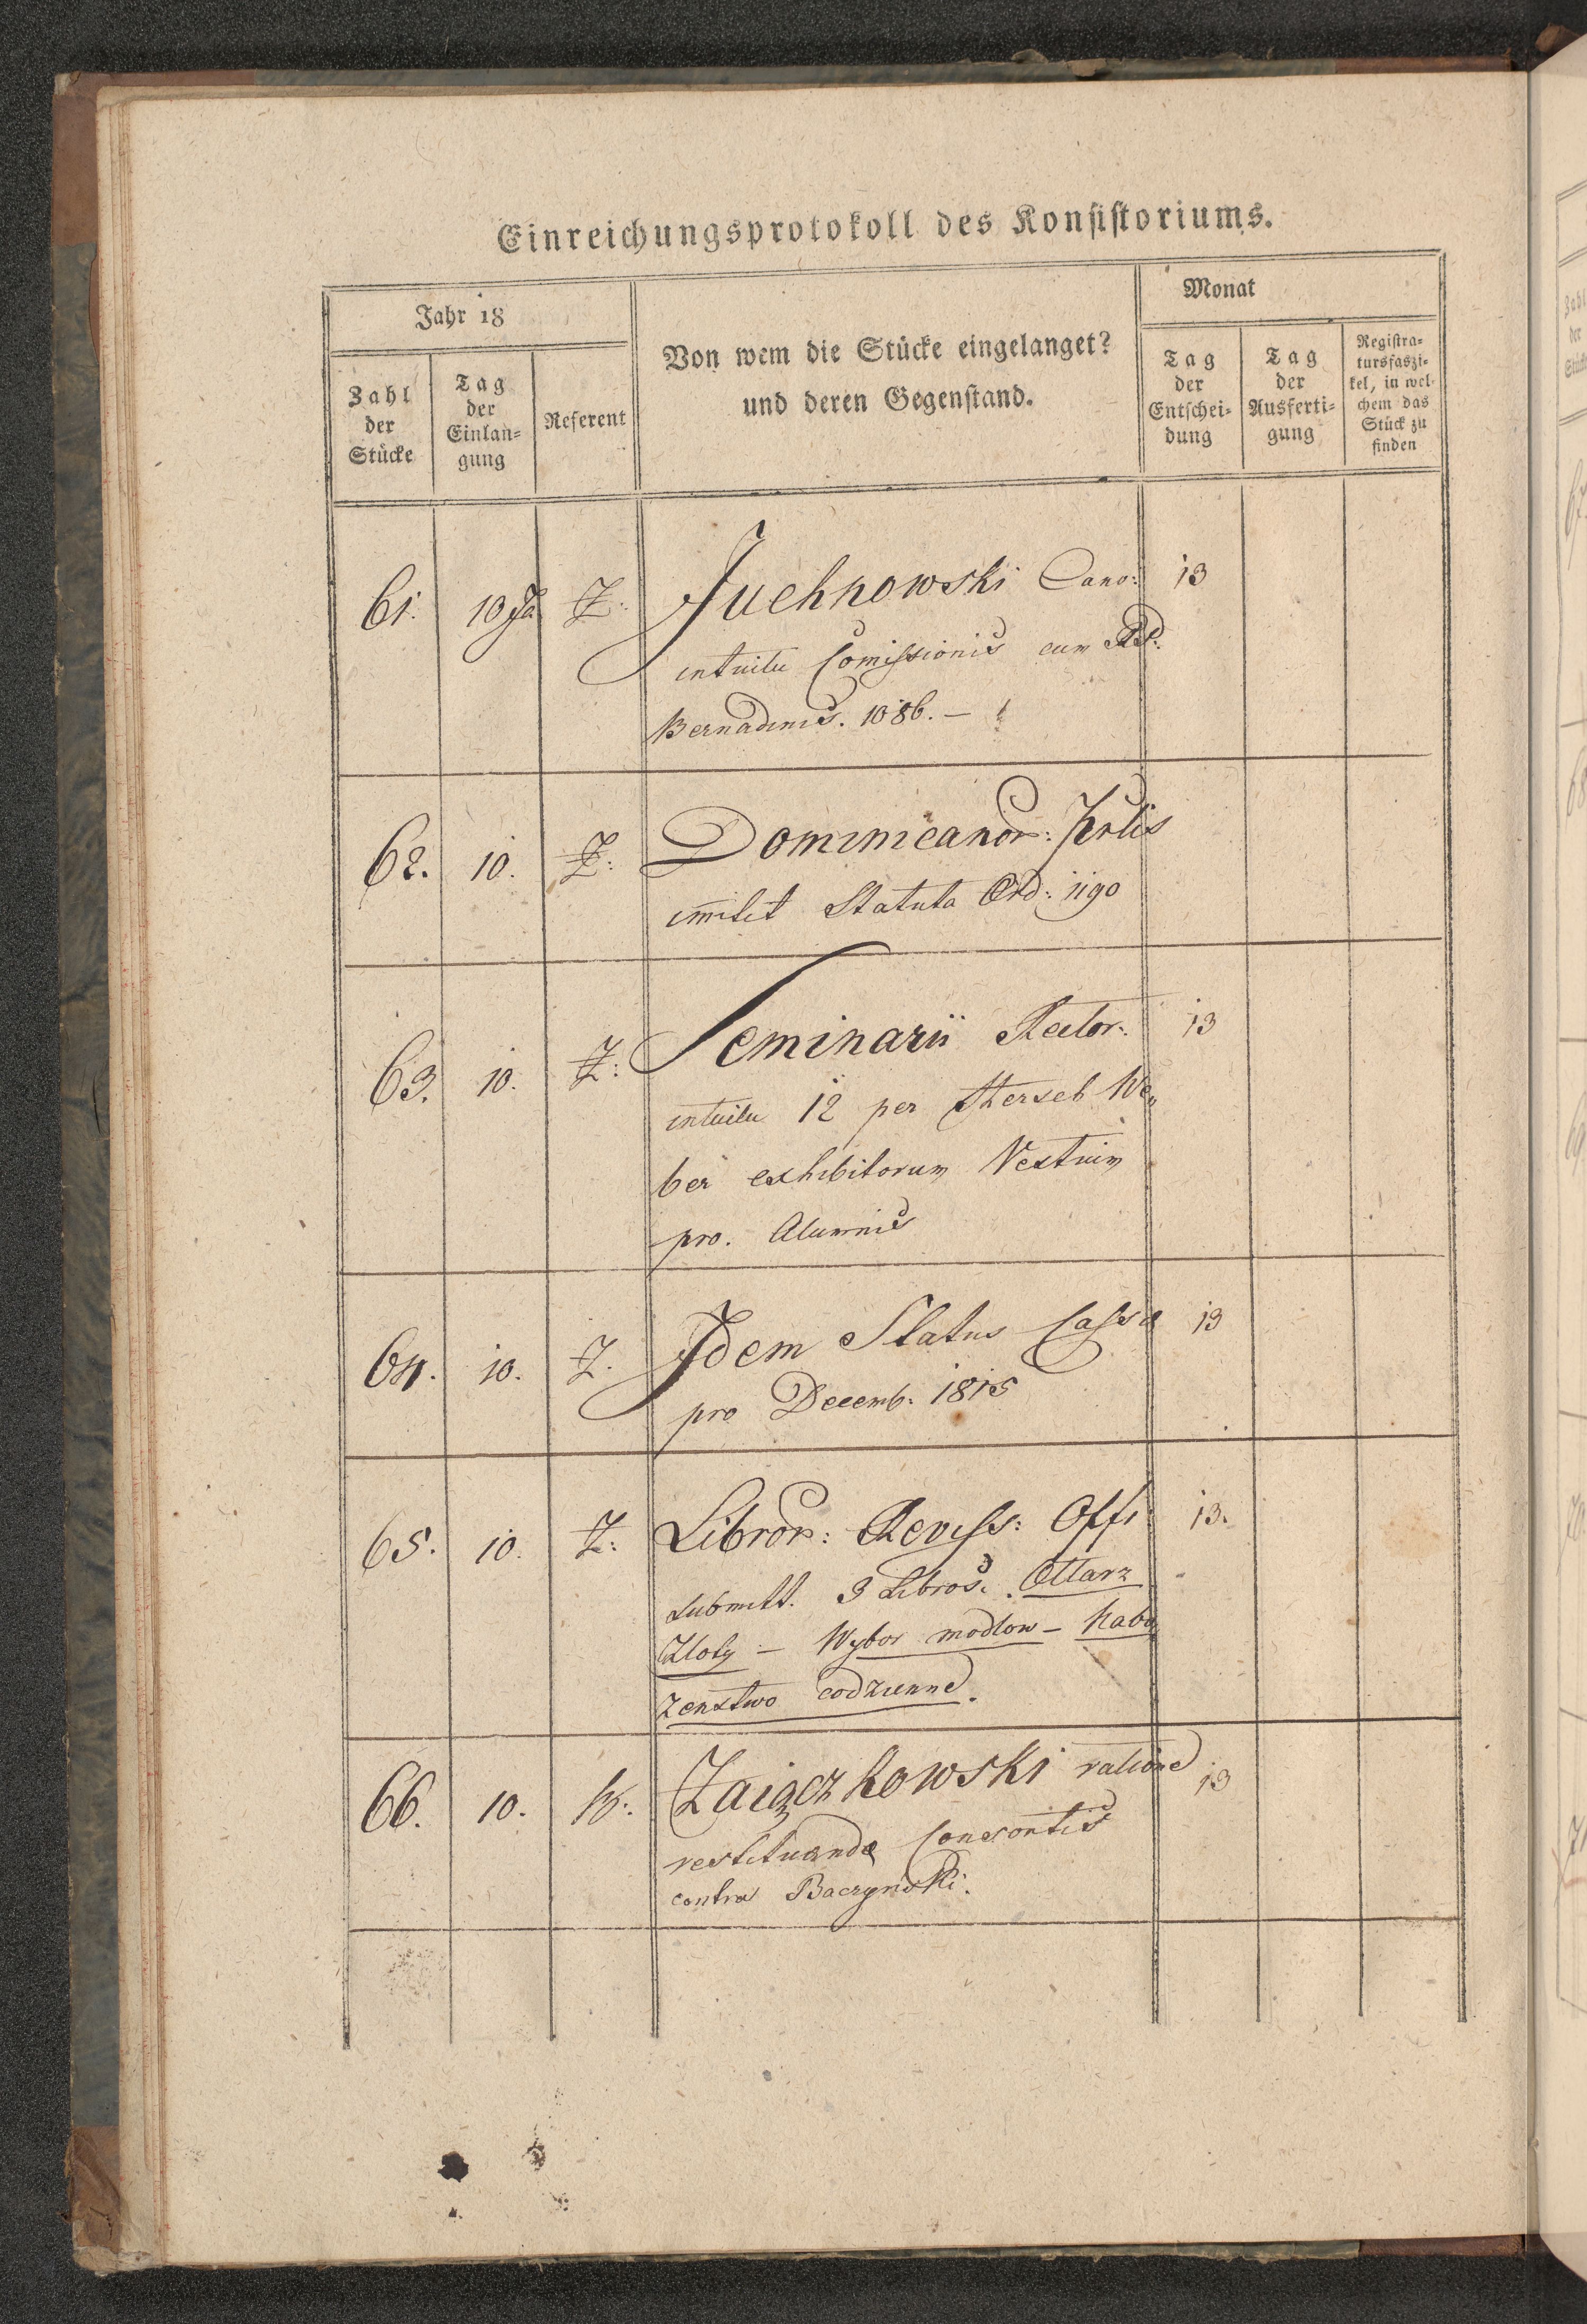 Einreichungsprotokoll des Konsistoriums.
Jahr 18
Von wem die Stücke eingelanget?
und deren Gegenstand.
Monat
Zahl
der
Stücke
Tag
der
Einlan=
gung
Referent
Tag
der
Entschei=
dung
Tag
der
Ausferti=
gung
Registra=
tursfaszi=
kel, in wel=
chem das
Stück zu
finden
61. 10 Ja Z: Juchnowski Cano: 13
intuitu Comissionis cum
Bernadinis. 1086. –
62. 10. Z: Dominicanor:
Statuta Ord: 1190
63. 10. Z: Seminarii Rector. 13
intuitu 12 per Herseh We„
ber exhibitorum Vestium
pro. Alumnis
64. 10. Z. Idem Status Cassa 13
pro Decemb. 1815
65. 10. Z: Libror: Reviss: Offi 13.
submitt. 3 Libros. Ottarz
Zloty – Wybor modlow – Nabo„
zenstwo codzienne.
66. 10. Zaiączkowski ratione 13
restituenda
contra Baczynski.